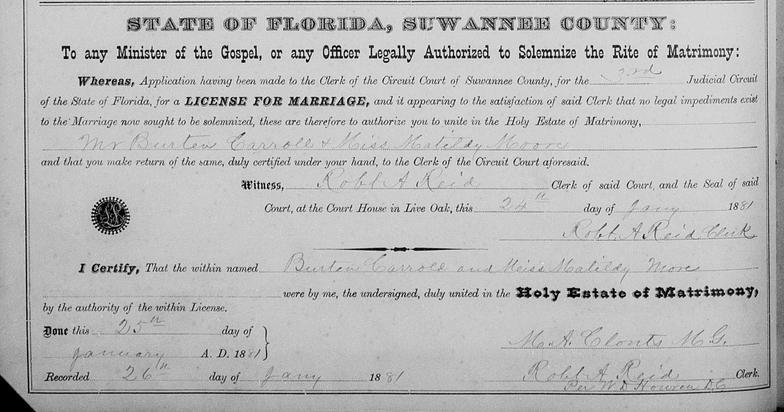 STATE OF FLORIDA, SUWANNEE COUNTY:
To any Minister of the Gospel, or any Officer Legally Authorized to Solemnize the Rite of Matrimony:
Whereas, Application having been made to the Clerk of the Circuit Court of Suwannee County, for the 3rd Judicial Circuit
of the State of Florida, for a LICENSE FOR MARRIAGE, and it appearing to the satisfaction of said Clerk that no legal impediments exist
to the Marriage now sought to be solemnized, these are therefore to authorize you to unite in the Holy Estate of Matrimony,
Mr Burten Carroll & Miss Matildy Moore
and that you make return of the same, duly certified under your hand, to the Clerk of the Circuit Court aforesaid.
Witness, Robt A Reid Clerk of said Court, and the Seal of said
Court, at the Court House in Live Oak, this 24th day of Jany 1881
Robt A Reid Clerk
I Certify, That the within named Burten Carroll and Miss Matildy More
were by me, the undersigned, duly united in the Holy Estate of Matrimony,
by the authority of the within License.
Done this 25th day of
January A. D. 1881
M. A. Clonts M.G.
Recorded 26th day of Jany 1881 Robt A Reid Clerk.
Per W D D.C.